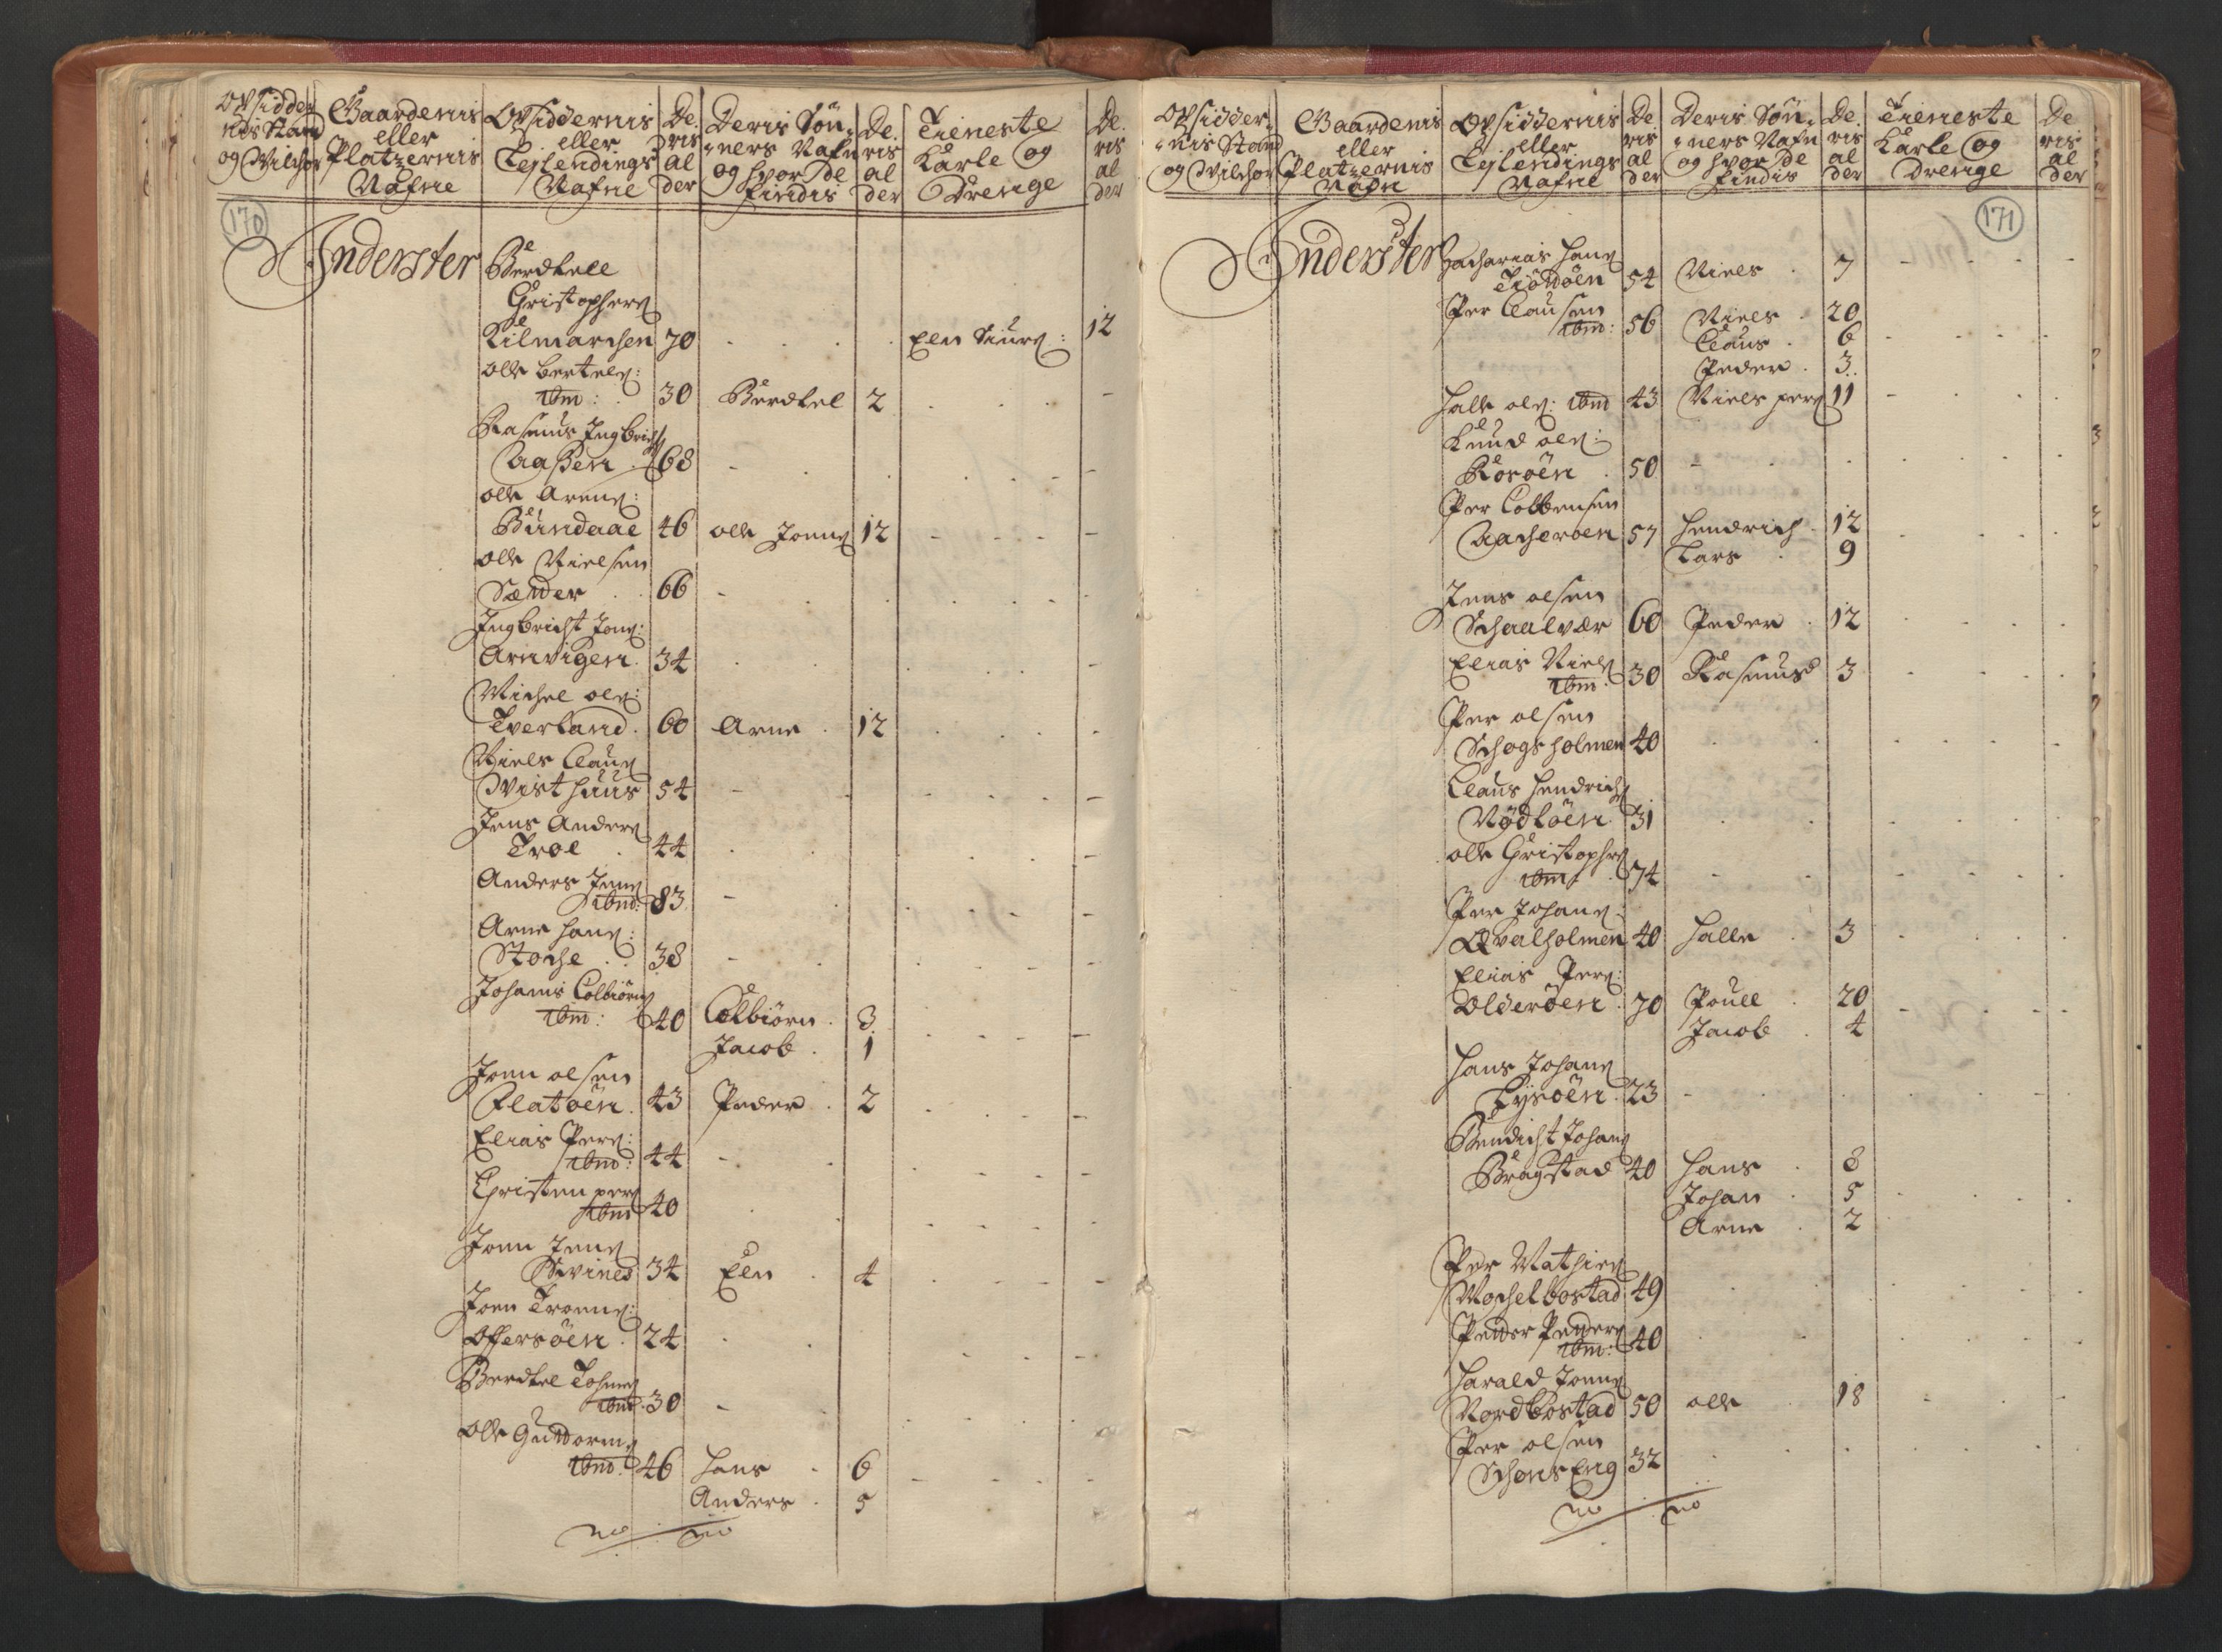 Opsidder
nis Stand
og Vilchor
Gaardenis
eller
Platzernis
Nafne
Opsiddernis
eller
Leylendings
Nafne
De.
ris
al
der
Deris Søn,
ners Nafn
og hvor de
findis
De.
ris
al
der
Tieneste
Karle og
Drenge
De.
ris
al
der
170
Inderster Berdtell
Christophers
Kilmarchen 70 Elen Siurs: 12
Olle bertels:
ibm: 30 Berdtel 2
Rasmus Ingbrichs
Aaßen 68
Olle Arens:
Bundaal 46 Olle Joens 12
Olle Nielsen
Sænder 66
Ingbricht Jons:
Arnvigen 34
Michel ols:
Tverland 60 Arne 12
Niels Claus
Visthuus 54
Jens Anders
Trol 44
Anders Jens
ibm: 83
Arne hans:
Stoche 38
Johanis Colbiørns
ibm: 40 Colbiørn 3
Jacob 1
Joen olsen
Flatøen 43 Peder 2
Elias Pers:
ibm: 44
Christen pers
ibm 40
Joen Jens
Svines 34 Elen 4
Joen Troens:
Offersøen 24
Berdtel Johns
ibm 30
Olle Guttorms
ibm: 46 Hans 6
Anders 5
Opsidder,
nis Stand
og Vilchor
Gaardenis
eller
Platzernis
Nafn
Opsiddernis
eller
Leylendings
Nafne
De
ris
al
der
Deris Søn,
ners Nafn
og hvor de
findis
De.
ris
al
der
Tieneste
Karle og
Drenge
De
ris
al
der
171
Inderster Zacharias Hans
Tiøtøen 54 Niels 7
Per Clausen
ibm: 56 Niels 20
Claus 6
Peder 3
Halle ols: ibm 43 Niels pers 11
Knud ols:
Rosøen 50
Per Colbensen
Aacherøen 57 Hendrich 12
Lars 9
Jens olsen
Schaalvær 60 Peder 12
Elias Niels
ibm: 30 Rasmus 3
Per olsen
Schogsholmen 40
Claus Hendrichs
Rødløen 31
Olle Christophers
ibm: 74
Per Johans:
Qvalholmen 40 Halle 3
Elias Pers:
Olderøen 70 Pouell 20
Jacob 4
Hans Johans
Lysøen 23
Bendicht Johans
Bragstad 40 Hans 8
Johan 5
Arne 2
Per Mathies
Mochelbostad 49
Petter Petters
ibm: 40
Harald Joens
Nordbostad 50 Olle 18
Per olsen
Schonseng 32